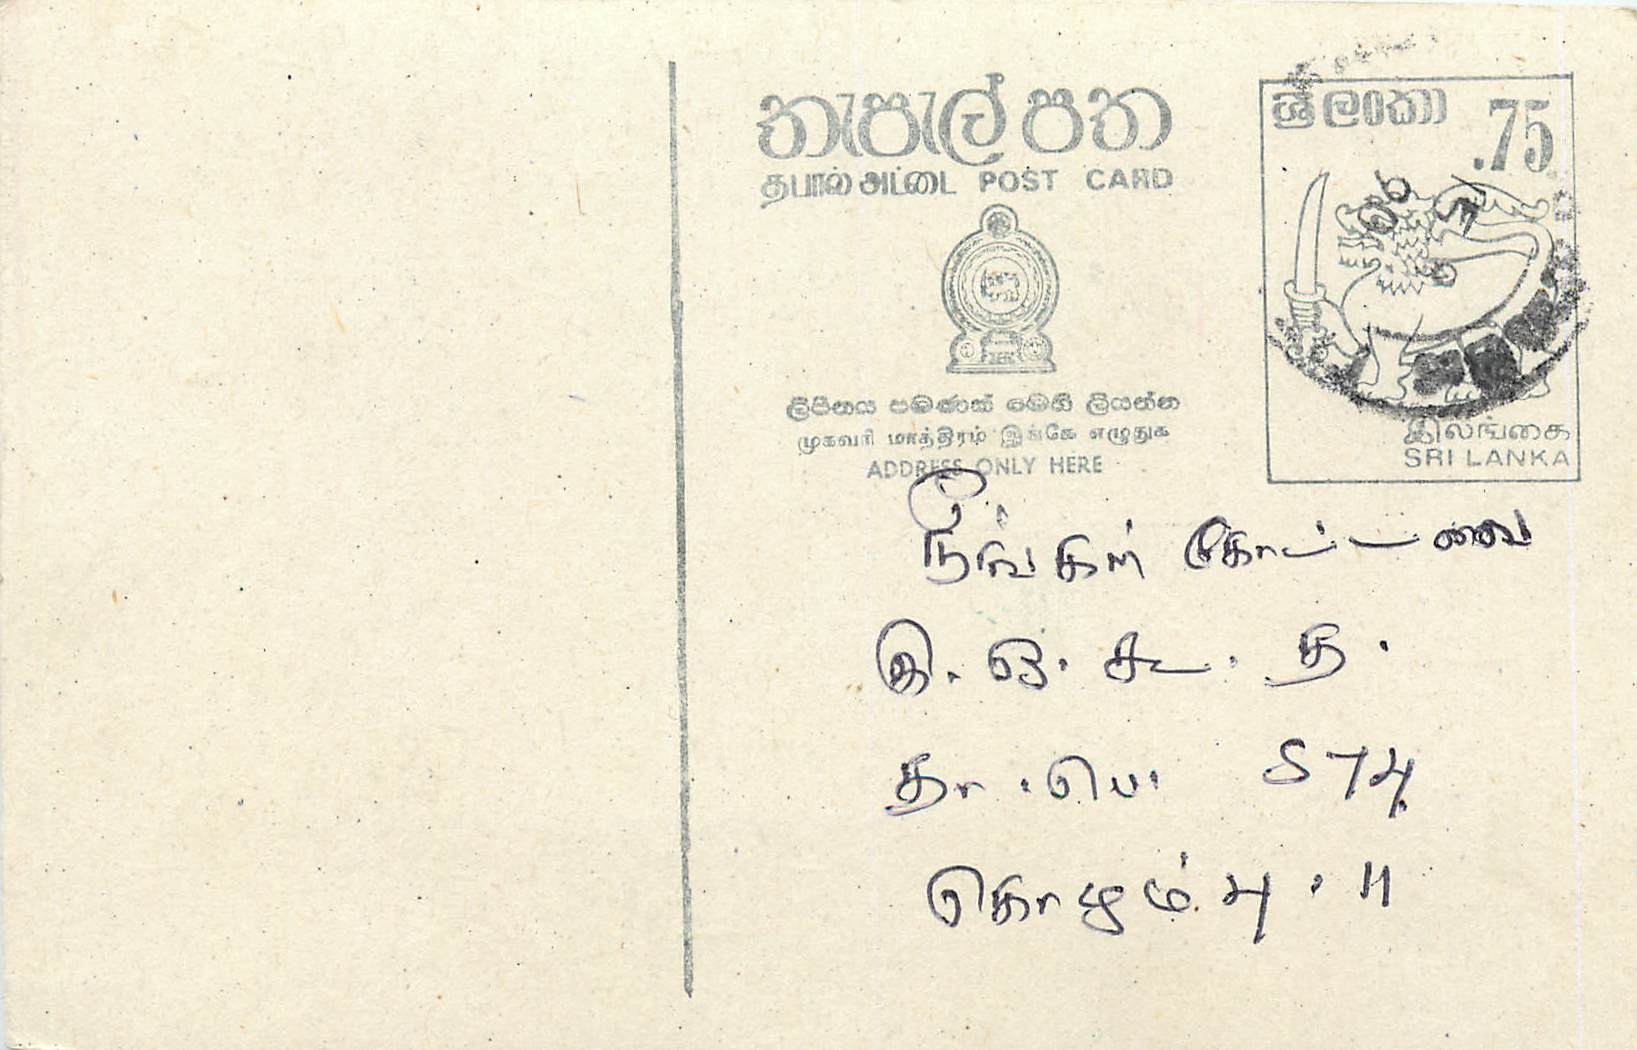 තැපැල් පත
தபால் அட்டை POST CARD
ශ්‍රී ලංකා .75
ලිපිනය පමණක් මෙහි ලියන්න
முகவரி மாத்திரம் இங்கே எழுதுக
ADDRESS ONLY HERE
இலங்கை
SRI LANKA
நீங்கள் கேட்டவை
இ. ஒ. கூ. த.
தா. பெ. 574
கொழும்பு. 11